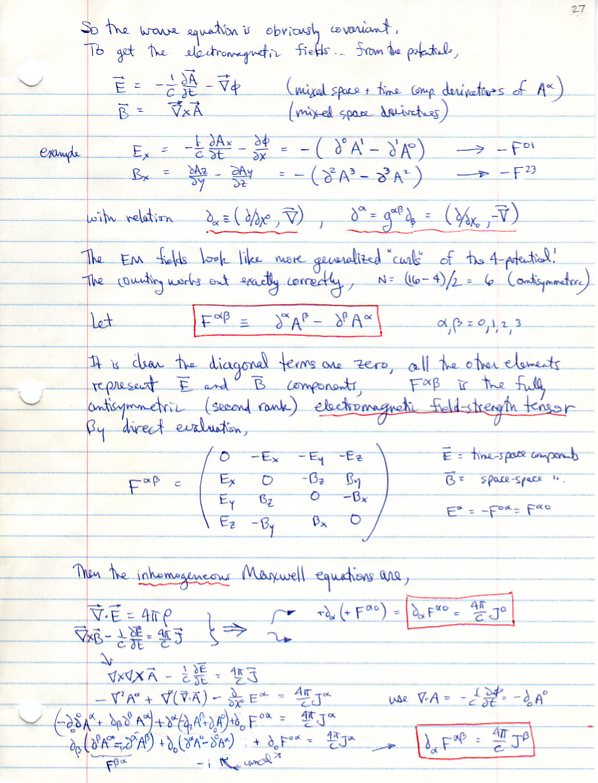 27
So the wave equation is obviously covariant.
To get the electromagnetic fields... from the potentials,
E⃗ = -1/c ∂A⃗/∂t - ∇⃗φ (mixed space + time comp derivatives of A^α)
B⃗ = ∇⃗×A⃗ (mixed space derivatives)
example E_x = -1/c ∂A_x/∂t - ∂φ/∂x = -(∂⁰A¹ - ∂¹A⁰) → -F⁰¹
B_x = ∂A_z/∂y - ∂A_y/∂z = -(∂²A³ - ∂³A²) → -F²³
with relation ∂_α ≡ (∂/∂x⁰, ∇⃗), ∂^α = g^αβ ∂_β = (∂/∂x₀, -∇⃗)
The EM fields look like more generalized "curls" of the 4-potential!
The counting works out exactly correctly, N = (16-4)/2 = 6 (antisymmetric)
Let F^αβ ≡ ∂^αA^β - ∂^βA^α α,β = 0,1,2,3
It is clear the diagonal terms are zero, all the other elements
represent E⃗ and B⃗ components, F^αβ is the fully
antisymmetric (second rank) electromagnetic field-strength tensor
By direct evaluation,
F^αβ = ( 0 -E_x -E_y -E_z
E_x 0 -B_z B_y
E_y B_z 0 -B_x
E_z -B_y B_x 0 )
E⃗ = time-space components
B⃗ = space-space ".
E^α = -F^0α = F^α0
Then the inhomogeneous Maxwell equations are,
∇⃗·E⃗ = 4πρ
∇⃗×B⃗ - 1/c ∂E⃗/∂t = 4π/c J⃗ } ⇒
+∂_α(+F^α0) = ∂_αF^α0 = 4π/c J⁰
∇×∇×A⃗ - 1/c ∂E⃗/∂t = 4π/c J⃗
-∇²A^α + ∇^α(∇·A⃗) - ∂/∂x₀ E^α = 4π/c J^α use ∇·A = -1/c ∂φ/∂t = -∂₀A⁰
+∂₀F^0α = 4π/c J^α
+∂₀F^0α = 4π/c J^α → ∂_αF^αβ = 4π/c J^β
F^βα